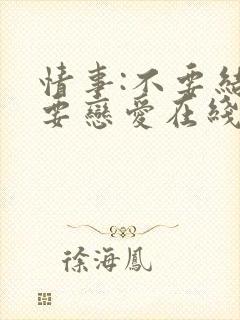 情事:不要結
要戀愛在綫
徐海鳳